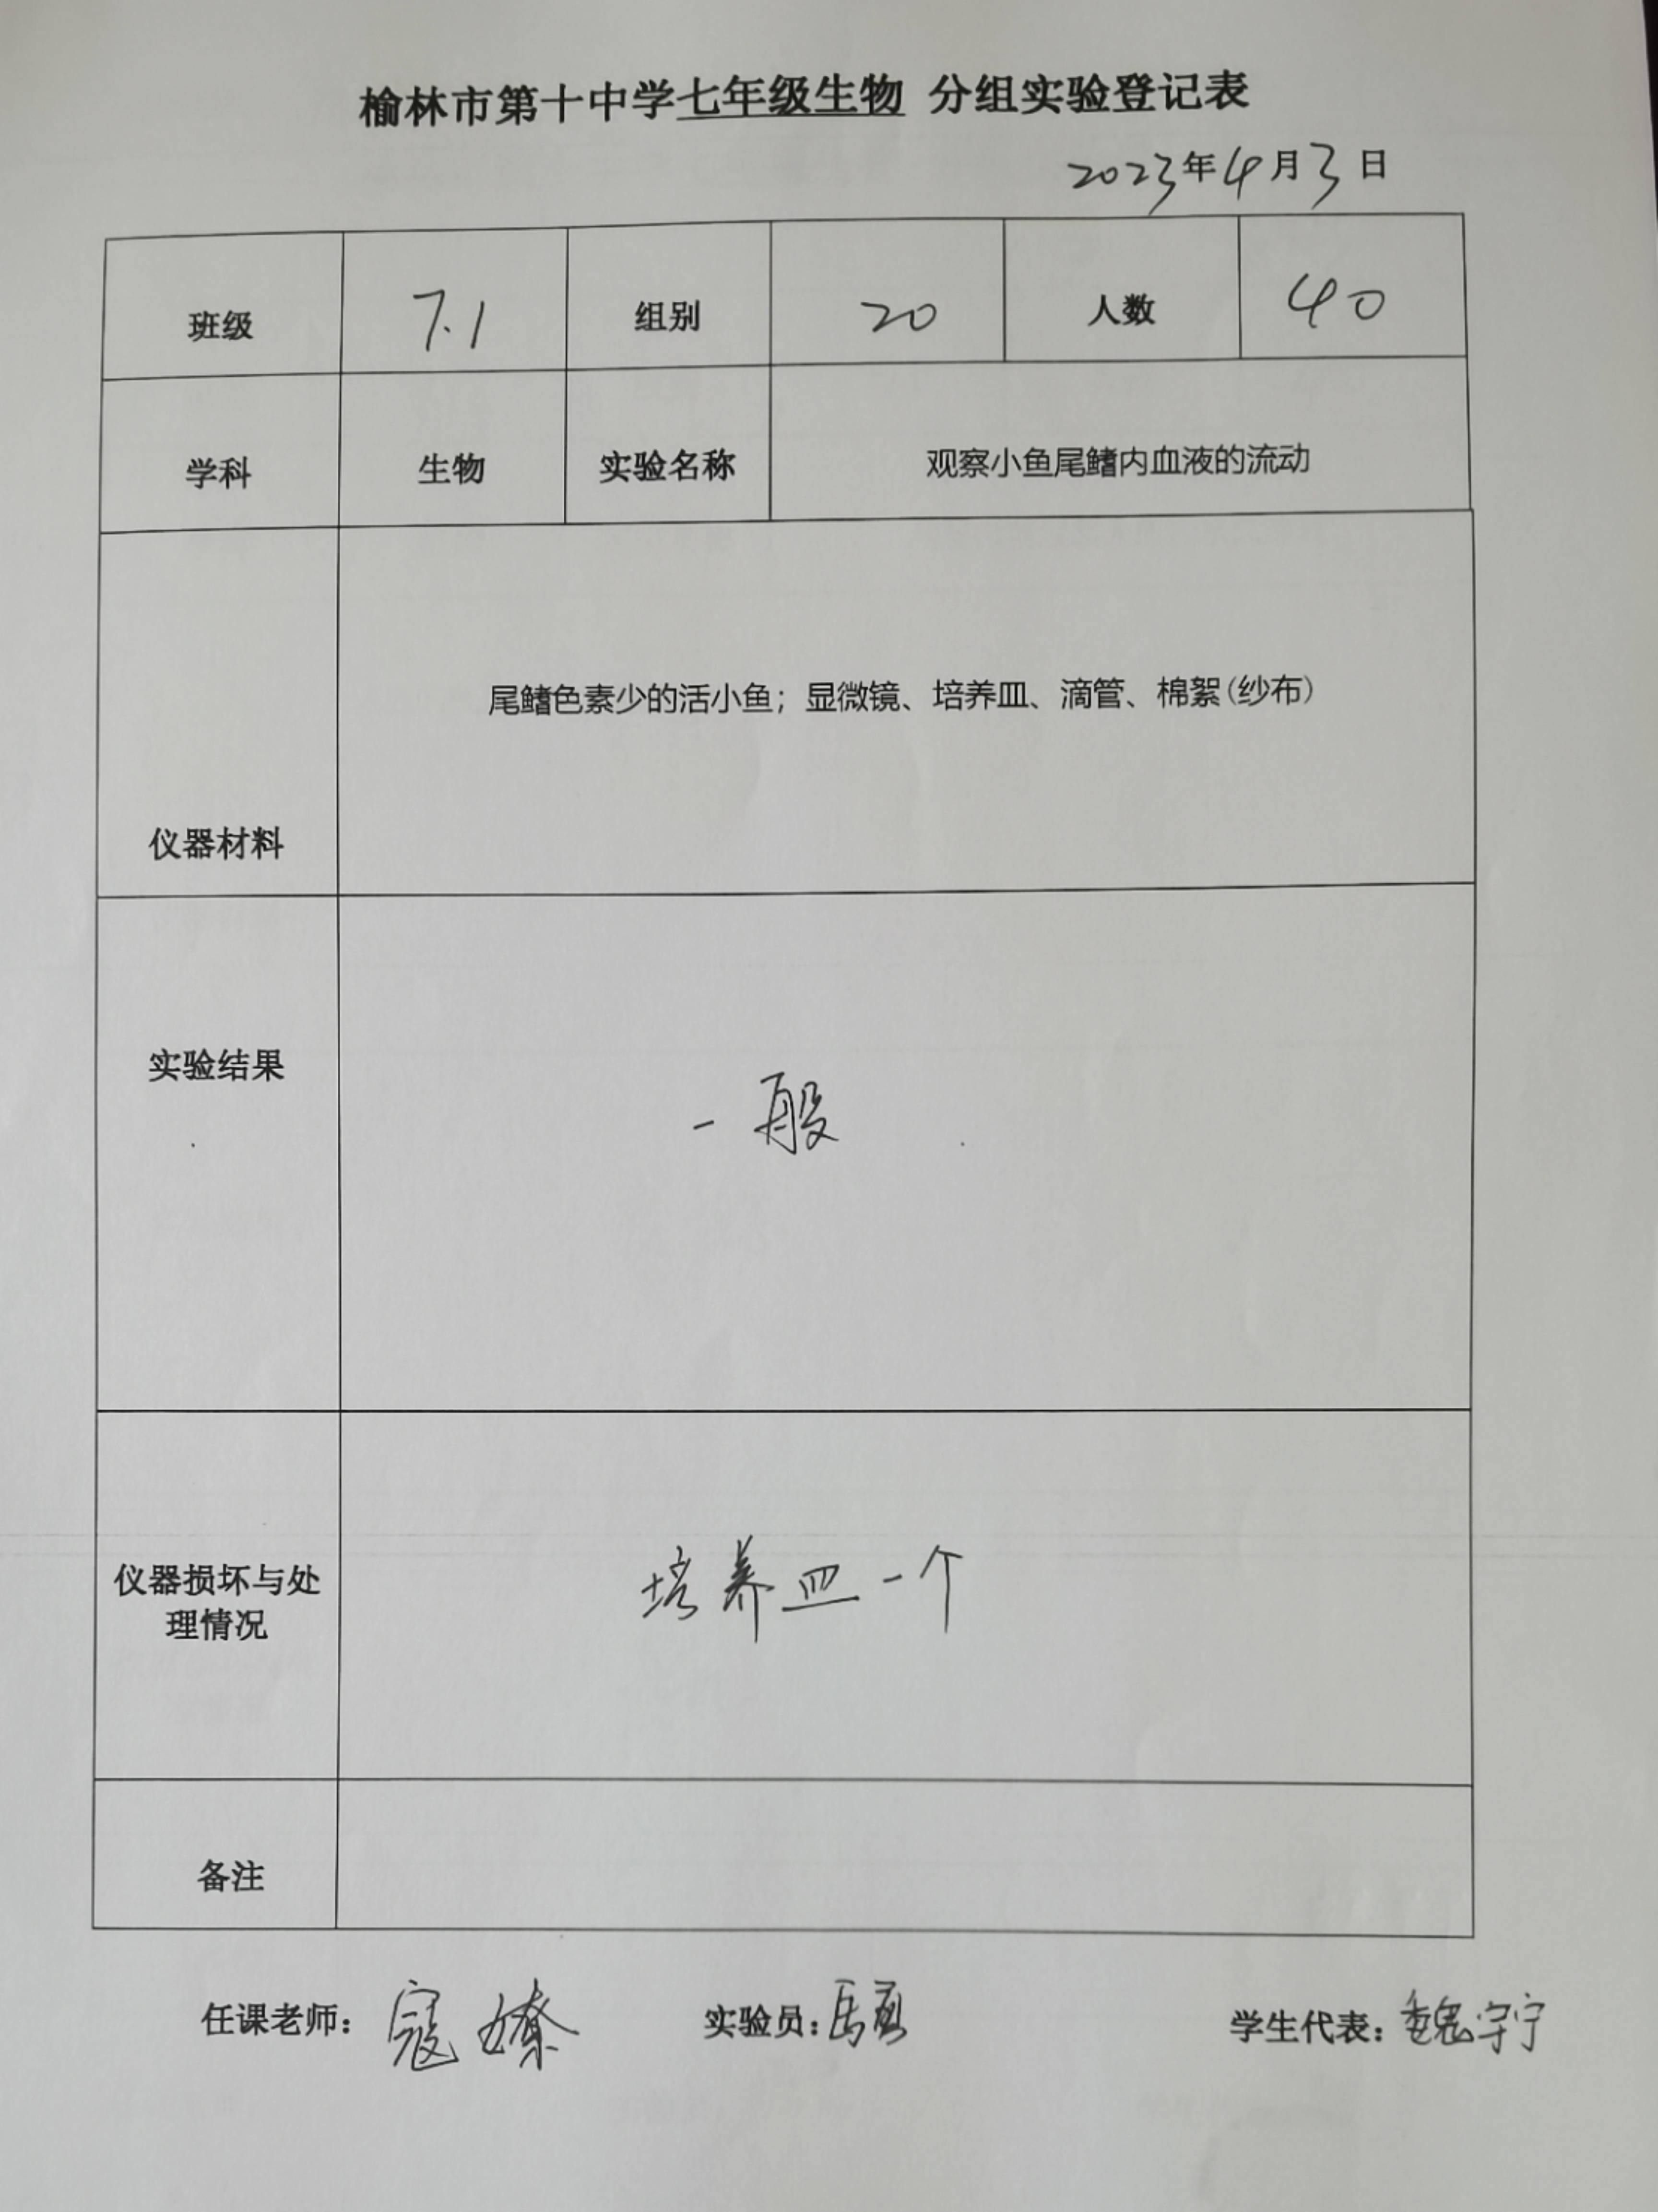 榆林市第十中学七年级生物 分组实验登记表
2023年4月3日
班级 7.1 组别 20 人数 40
学科 生物 实验名称 观察小鱼尾鳍内血液的流动
尾鳍色素少的活小鱼；显微镜、培养皿、滴管、棉絮（纱布）
仪器材料
实验结果
一般
仪器损坏与处
理情况
培养皿一个
备注
任课老师： 寇 实验员： 学生代表：魏宇宁